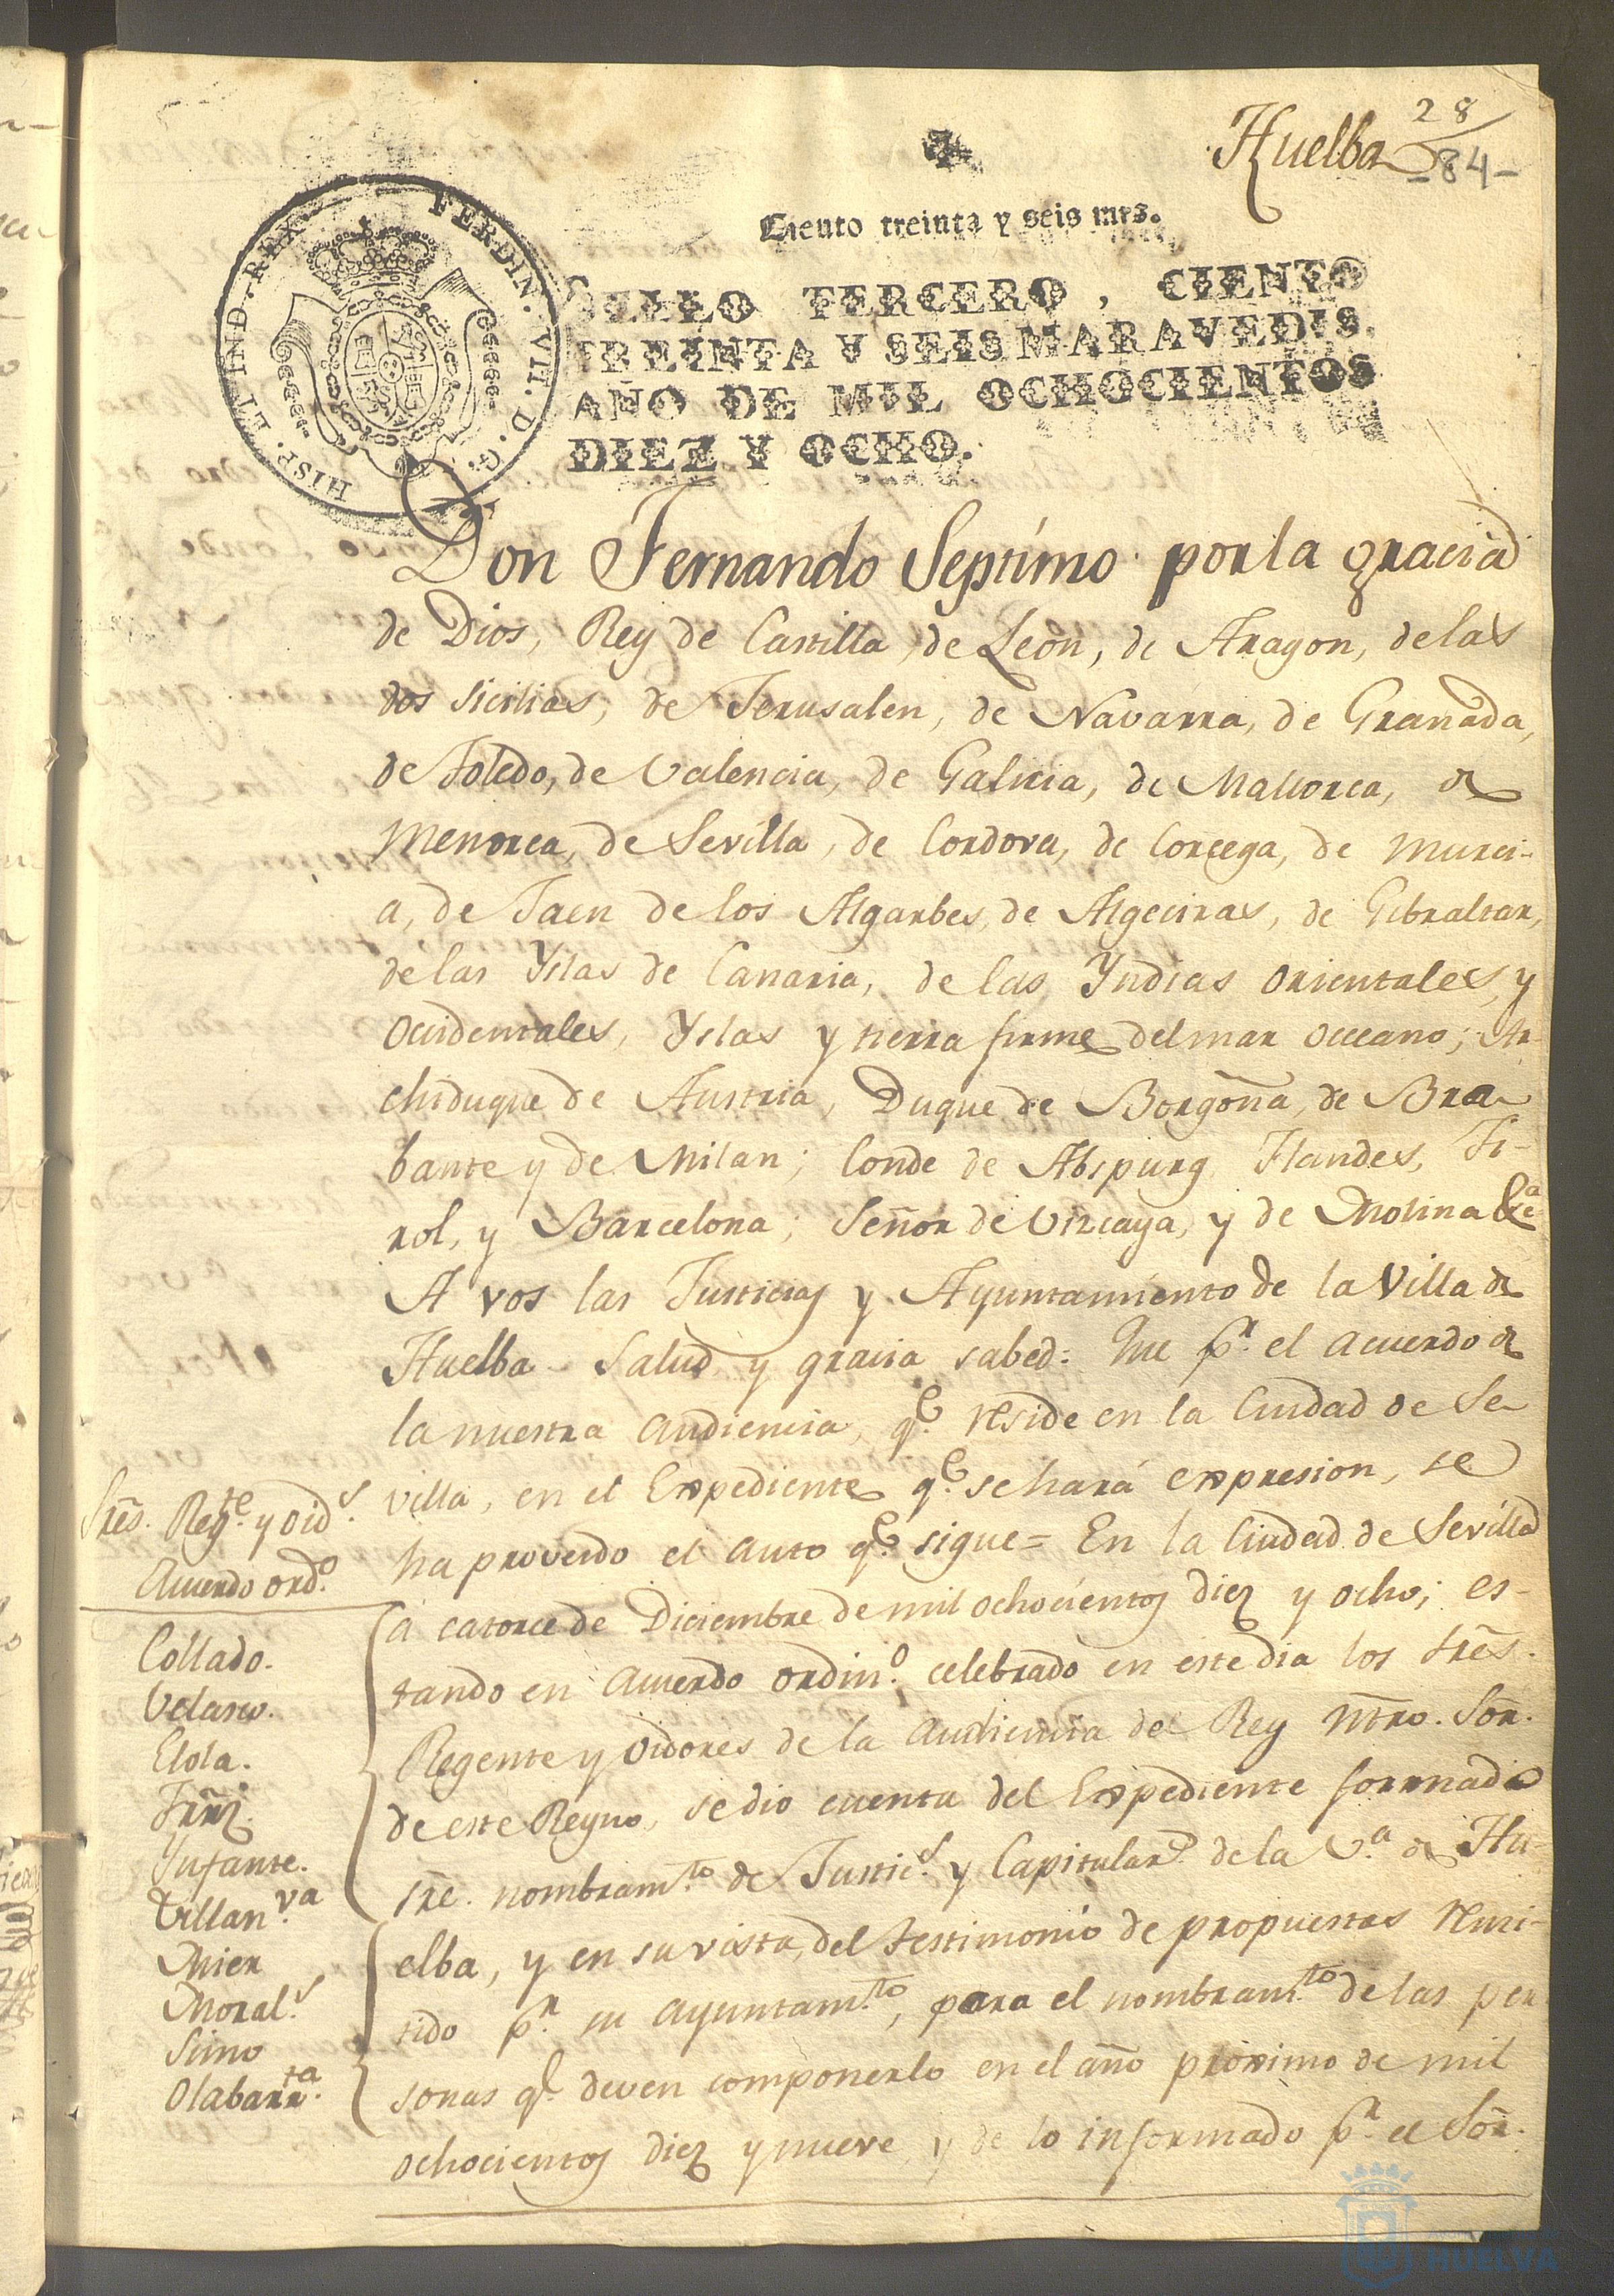 Huelba 28
-84-
Ciento treinta y seis mrs.
SELLO TERCERO, CIENTO
TREINTA Y SEIS MARAVEDIS,
AÑO DE MIL OCHOCIENTOS
DIEZ Y OCHO.
FERDIN. VII. D. G. HISP. ET IND. REX
Don Fernando Septimo por la gracia
de Dios, Rey de Castilla, de Leon, de Aragon, de las
dos Sicilias, de Jerusalen, de Navarra, de Granada,
de Toledo, de Valencia, de Galicia, de Mallorca, de
Menorca, de Sevilla, de Cordova, de Corcega, de Murci-
a, de Jaen de los Algarbes, de Algeciras, de Gibraltar,
de las Yslas de Canaria, de las Yndias orientales, y
occidentales, Yslas y tierra firme del mar occeano; Ar-
chiduque de Austria, Duque de Borgoña, de Bra-
bante y de Milan; Conde de Abspurg Flandes, Ti-
rol, y Barcelona; Señor de Vizcaya, y de Molina &cª
A vos las Justicias y Ayuntamiento de la Villa de
Huelba Salud y gracia sabed: Que pr. el acuerdo de
la nuestra Audiencia, qe. reside en la Ciudad de Se-
villa, en el Expediente qe. se hará expresion, se
ha proveido el auto qe. sigue = En la Ciudad de Sevilla
á catorce de Diciembre de mil ochocientos diez y ocho; es-
tando en Acuerdo ordino. celebrado en este dia los Sres.
Regente y Oidores de la Audiencia del Rey Ntro. Sor.
de este Reyno, se dio cuenta del Expediente formado
sre. nombramto. de Justics. y Capitulars. de la Va. de Hu-
elba, y en su vista, del testimonio de propuestas remi-
tido pr. su Ayuntamto., para el nombramto. de las per
sonas qe. deven componerlo en el año proximo de mil
ochocientos diez y nueve y de lo informado pr. el Sor.
Sres. Regte. y Oids.
Acuerdo ordo.
Collado.
Velasco.
Elola.
Frnz.
Ynfante.
Villanva.
Mier
Morals.
Simo
Olabarrta.
HUELVA